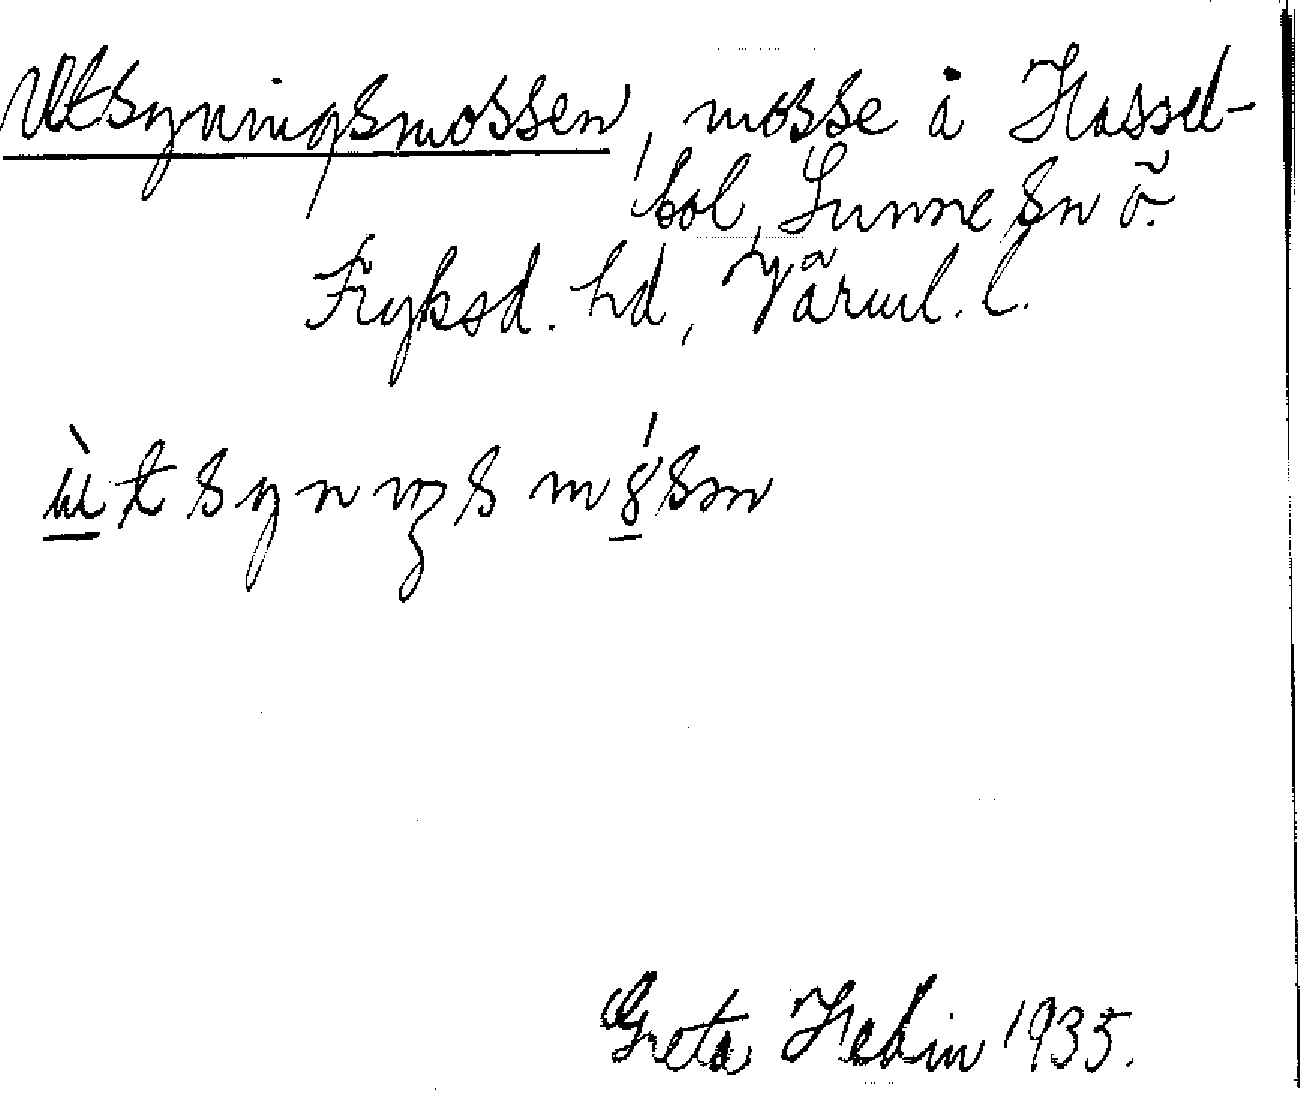 Utsyningsmossen, mosse i Hassel-
bol, Sunne sn ö.
Fryksd. hd, Värml. l.
Greta Hedin 1935.